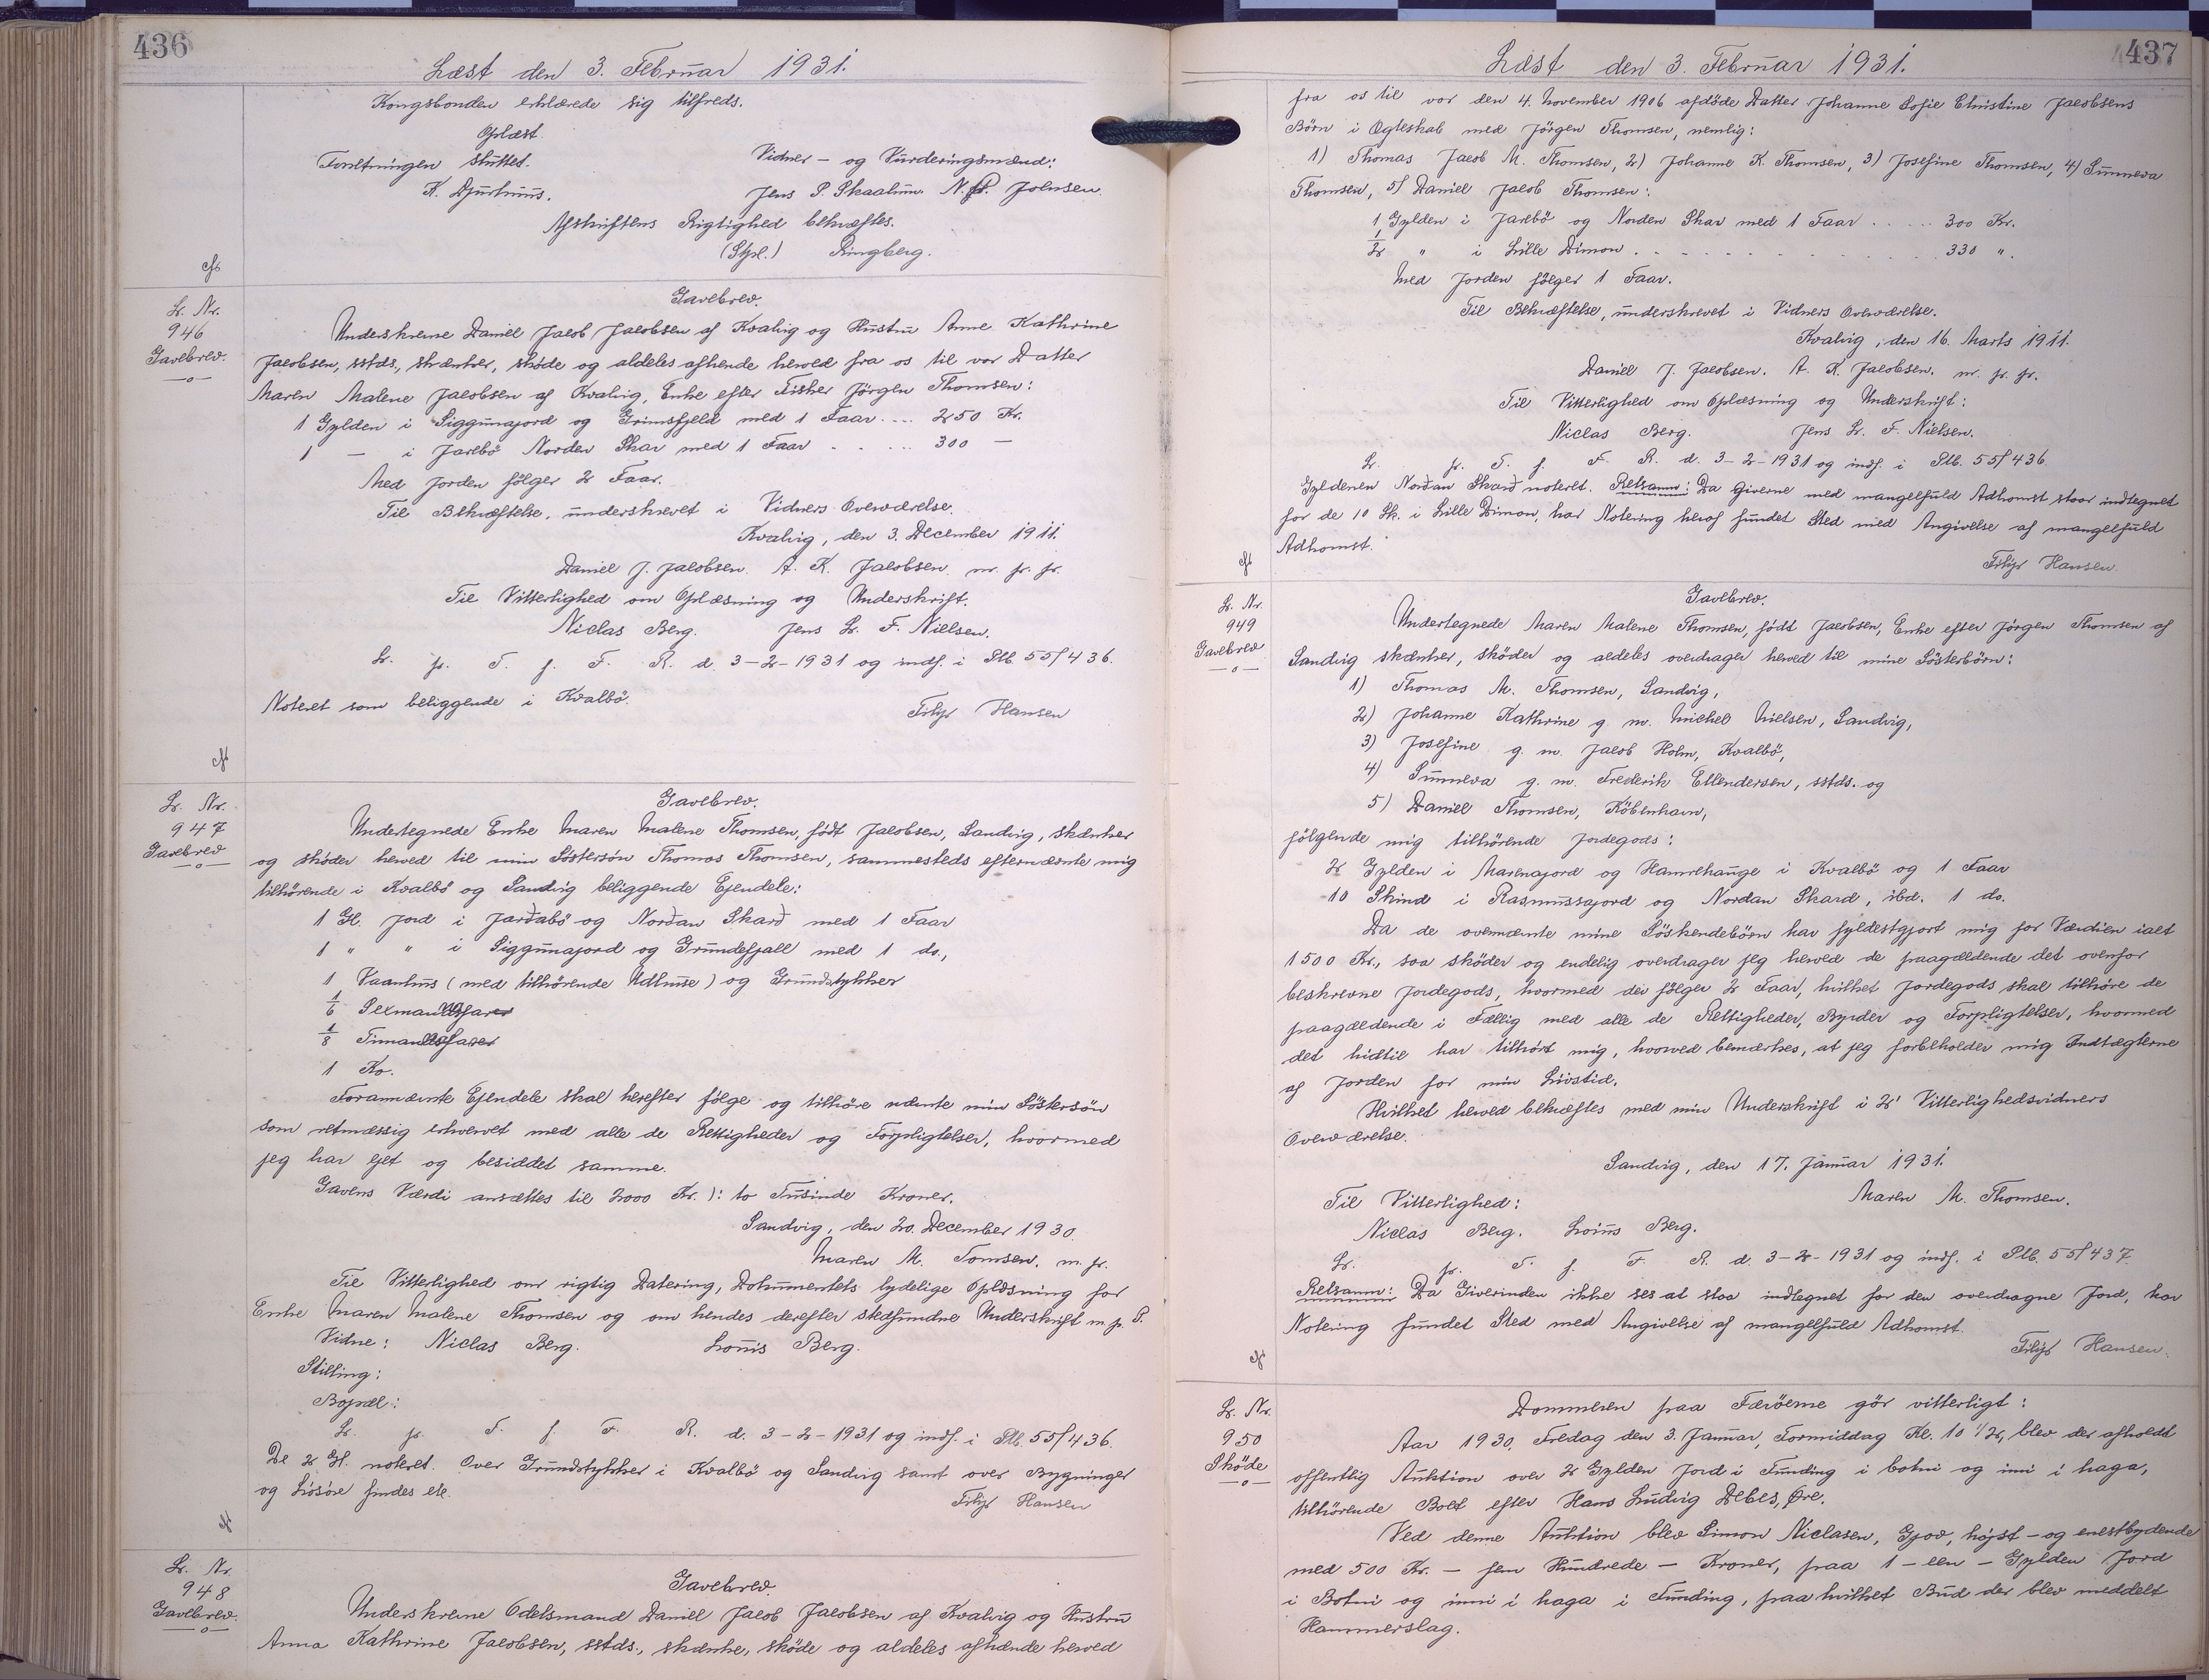 436
Læst den 3. Februar 1931.
Kongsbonden erklærede sig tilfreds.
Oplæst.
Forretningen sluttet. Vidner – og Vurderingsmænd:
K. Djurhuus. Jens P. Skaalum. N. P. Johnsen
Afskriftens Rigtighed bekræftes.
(Stpl.) Ringberg.
L. Nr.
946
Gavebrev.
Gavebrev.
Underskrevne Daniel Jacob Jacobsen af Kvalvig og Hustru Anne Kathrine
Jacobsen, sstds., skænker, skøde og aldeles afhende herved fra os til vor Datter
Maren Malene Jacobsen af Kvalvig, Enke efter Fisker Jörgen Thomsen:
1 Gylden i Siggunajord og Grimsfjeld med 1 Faar .... 250 Kr.
1 — i Jarebö Norder Skar med 1 Faar . . . . 300 —
Med Jorden fölger 2 Faar.
Til Bekræftelse, underskrevet i Vidners Overværelse.
Kvalvig, den 3. December 1911.
Daniel J. Jacobsen. A. K. Jacobsen m. p. p.
Til Vitterlighed om Oplæsning og Underskrift.
Niclas Berg. Jens L. F. Nielsen.
L. p. T. f. F. R. d. 3-2-1931 og indf. i Ptb. 55/436.
Noteret som beliggende i Kvalbö.
Filip Hansen
L. Nr.
947
Gavebrev
Gavebrev.
Undertegnede Enke Maren Malene Thomsen, født Jacobsen, Sandvig, skænker
og skøder herved til min Söstersön Thomas Thomsen, sammesteds efternævnte mig
tilhörende i Kvalbö og Sandvig beliggende Ejendele:
1 Gl. Jord i Jarðabö og Norðan Skarð med 1 Faar
1 " " i Siggunajord og Grundefjall med 1 do.,
1 Vaanhus (med tilhörende Udhuse) og Grundstykker
1/6 Sexmandsfarer
1/8 Timandsfarer
1 Ko.
Forannævnte Ejendele skal herefter fölge og tilhöre nævnte min Söstersön
som retmæssig erhvervet med alle de Rettigheder og Forpligtelser, hvormed
jeg har ejet og besiddet samme.
Gavens Værdi ansættes til 2000 Kr. ): to Tusinde Kroner.
Sandvig, den 20. December 1930.
Maren M. Tomsen. m. p.
Til Vitterlighed om rigtig Datering, Dokumentets lydelige Oplæsning for
Enke Maren Malene Thomsen og om hendes derefter stedfundne Underskrift m. p. P.
Vidne: Niclas Berg. Louis Berg.
Stilling:
Bopæl:
L. p. T. f. F. R. d. 3-2-1931 og indf. i Ptb. 55/436.
De 2 Gl. noteret. Over Grundstykker i Kvalbö og Sandvig samt over Bygninger
og Lösöre findes ele.
Filip Hansen
L. Nr.
948
Gavebrev.
Gavebrev.
Underskrevne Odelsmand Daniel Jacob Jacobsen af Kvalvig og Hustru
Anna Kathrine Jacobsen, sstds., skænke, skøde og aldeles afhænde herved
437
Læst den 3. Februar 1931.
fra os til vor den 4. November 1906 afdöde Datter Johanne Sofie Christine Jacobsens
Börn i Ægteskab med Jörgen Thomsen, nemlig:
1) Thomas Jacob M. Thomsen, 2) Johanne K. Thomsen, 3) Josefine Thomsen, 4) Sunneva
Thomsen, 5) Daniel Jacob Thomsen:
1 Gylden i Jarebö og Norden Skar med 1 Faar . . . . . 300 Kr.
1/2 " i Lille Dimon . . . . . . . . . . . 330 ".
Med Jorden fölger 1 Faar.
Til Bekræftelse, underskrevet i Vidners Overværelse.
Kvalvig, den 16. Marts 1911.
Daniel J. Jacobsen. A. K. Jacobsen. m. p. p.
Til Vitterlighed om Oplæsning og Underskrift:
Niclas Berg. Jens L. F. Nielsen.
L. p. T. f. F. R. d. 3-2-1931 og indf. i Ptb. 55/436
Gyldenen Norðan Skarð noteret. Retsanm: Da Giverne med mangelfuld Adkomst staar indtegnet
for de 10 Sk. i Lille Dimon, har Notering heraf fundet Sted med Angivelse af mangelfuld
Adkomst.
Filip Hansen.
L. Nr.
949
Gavebrev
Gavebrev.
Undertegnede Maren Malene Thomsen, født Jacobsen, Enke efter Jörgen Thomsen af
Sandvig skænker, sköder og aldeles overdrager herved til mine Sösterbörn:
1) Thomas M. Thomsen, Sandvig,
2) Johanne Kathrine g. m. Michel Nielsen, Sandvig,
3) Josefine g. m. Jacob Holm, Kvalbö,
4) Sunneva g. m. Frederik Ellendersen, sstds. og
5) Daniel Thomsen, Köbenhavn,
fölgende mig tilhörende Jordegods:
2 Gylden i Marenajord og Hamrehauge i Kvalbö og 1 Faar
10 Skind i Rasmussajord og Nordan Skard, ibd. 1 do.
Da de overnævnte mine Söskendebörn har fyldestgjort mig for Værdien ialt
1500 Kr., saa sköder og endelig overdrager jeg herved de paagældende det ovenfor
beskrevne Jordegods, hvormed der fölger 2 Faar, hvilket Jordegods skal tilhöre de
paagældende i Fællig med alle de Rettigheder, Byrder og Forpligtelser, hvormed
det hidtil har tilhört mig, hvorved bemærkes, at jeg forbeholder mig Indtægterne
af Jorden for min Livstid.
Hvilket herved bekræftes med min Underskrift i 2' Vitterlighedsvidners
Overværelse.
Sandvig, den 17. Januar 1931.
Til Vitterlighed: Maren M. Thomsen.
Niclas Berg. Louis Berg.
L. p. T. f. F. R. d. 3-2-1931 og indf. i Ptb. 55/437
Retsanm: Da Giverinden ikke ses at staa indtegnet for den overdragne Jord, har
Notering fundet Sted med Angivelse af mangelfuld Adkomst.
Filip Hansen.
L. Nr.
950
Sköde
Dommeren paa Færöerne gör vitterligt:
Aar 1930, Fredag den 3. Januar, Formiddag Kl. 10 1/2, blev der afholdt
offentlig Auktion over 2 Gylden Jord i Funding i botni og inni i haga,
tilhörende Boet efter Hans Ludvig Debes, Øre.
Ved denne Auktion blev Simon Niclasen, Gjov, höjst – og enestbydende
med 500 Kr. – fem Hundrede – Kroner, paa 1 – een – Gylden Jord
i Botni og inni i haga i Funding, paa hvilket Bud der blev meddelt
Hammerslag.